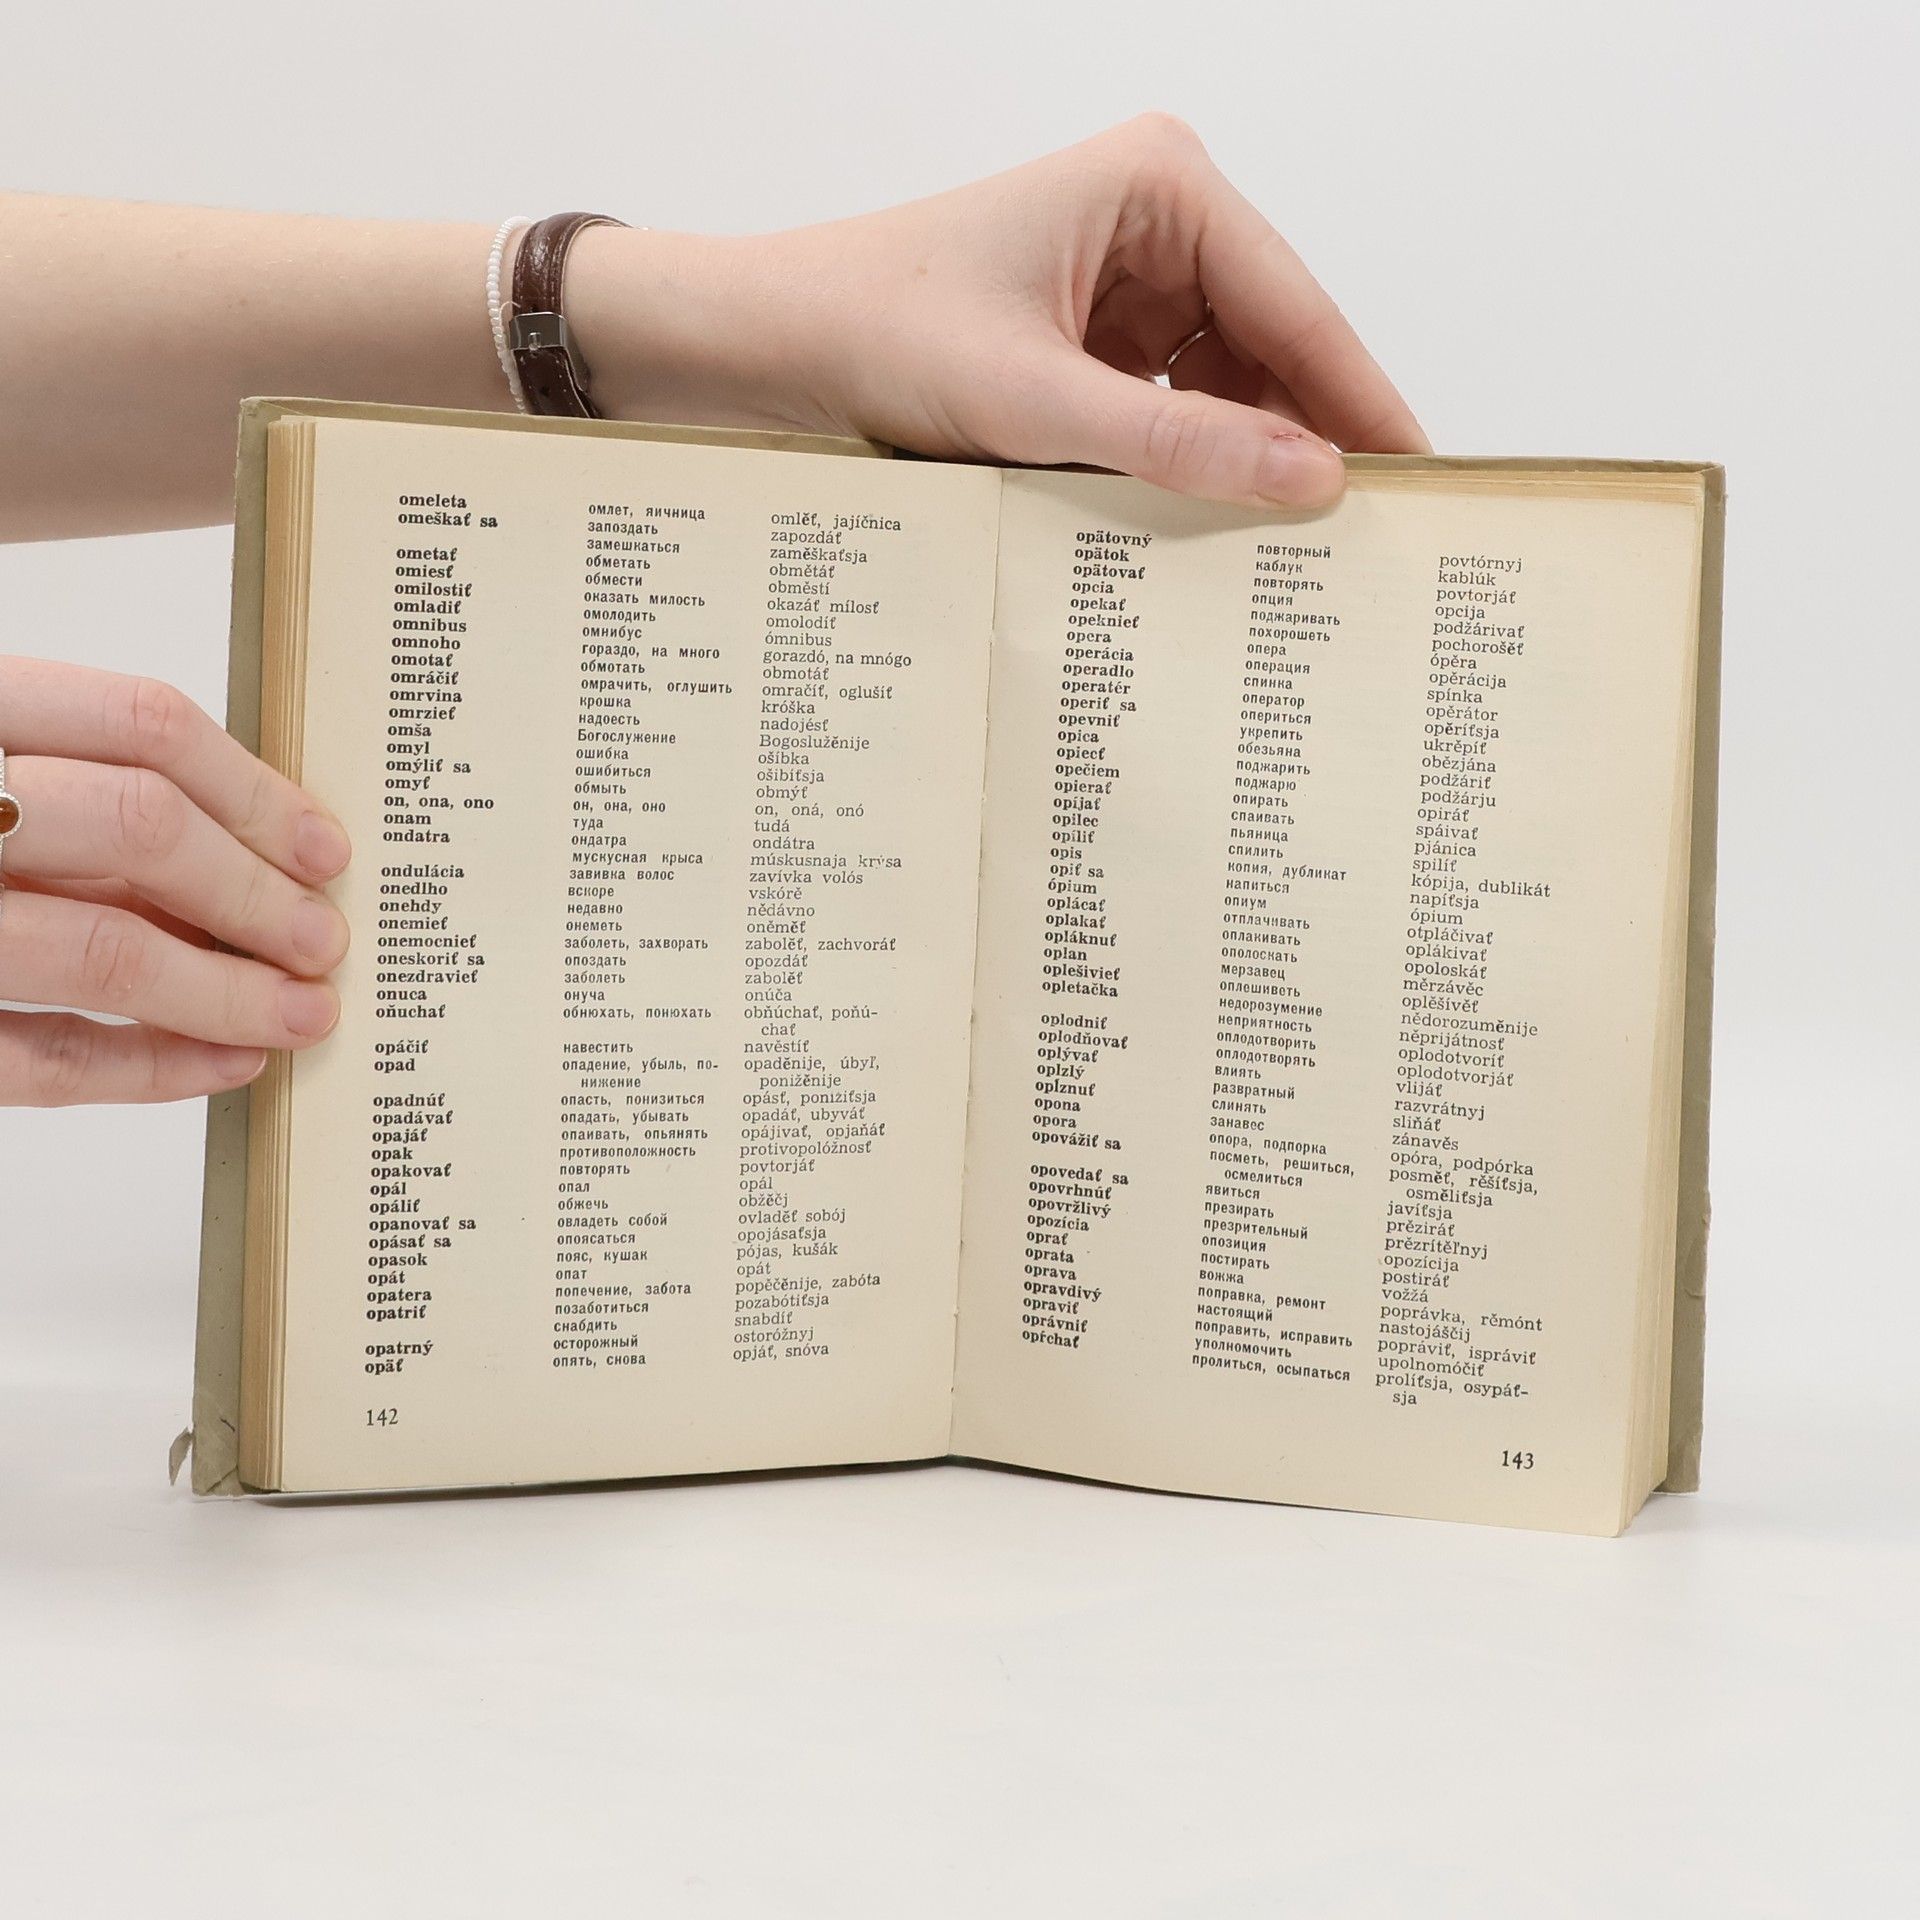 omeleta омлет, яичница omlěť, jajíčnica
omeškať sa запоздать zapozdáť
замешкаться zaměškaťsja
ometať обметать obmětáť
omiesť обмести obměstí
omilostiť оказать милость okazáť mílosť
omladiť омолодить omolodíť
omnibus омнибус ómnibus
omnoho гораздо, на много gorazdó, na mnógo
omotať обмотать obmotáť
omráčiť омрачить, оглушить omračíť, oglušíť
omrvina крошка króška
omrzieť надоесть nadojésť
omša Богослужение Bogoslužěnije
omyl ошибка ošíbka
omýliť sa ошибиться ošibíťsja
omyť обмыть obmýť
on, ona, ono он, она, оно on, oná, onó
onam туда tudá
ondatra ондатра ondátra
мускусная крыса múskusnaja krýsa
ondulácia завивка волос zavívka volós
onedlho вскоре vskórě
onehdy недавно nědávno
onemieť онеметь oněměť
onemocnieť заболеть, захворать zabolěť, zachvoráť
oneskoriť sa опоздать opozdáť
onezdravieť заболеть zabolěť
onuca онуча onúča
oňuchať обнюхать, понюхать obňúchať, poňú-
chať
opáčiť навестить navěstíť
opad опадение, убыль, по- opaděnije, úbyľ,
нижение ponižěnije
opadnúť опасть, понизиться opásť, ponízíťsja
opadávať опадать, убывать opadáť, ubyváť
opajáť опаивать, опьянять opájivať, opjaňáť
opak противоположность protivopolóžnosť
opakovať повторять povtorjáť
opál опал opál
opáliť обжечь obžěčj
opanovať sa овладеть собой ovladěť sobój
opásať sa опоясаться opojásaťsja
opasok пояс, кушак pójas, kušák
opát опат opát
opatera попечение, забота popěčěnije, zabóta
opatriť позаботиться pozabótiťsja
снабдить snabdíť
opatrný осторожный ostoróžnyj
opäť опять, снова opjáť, snóva
142
opätovný повторный povtórnyj
opätok каблук kablúk
opätovať повторять povtorjáť
opcia опция opcija
opekať поджаривать podžárivať
opeknieť похорошеть pochorošěť
opera опера ópěra
operácia операция opěrácija
operadlo спинка spínka
operatér оператор opěrátor
operiť sa опериться opěríťsja
opevniť укрепить ukrěpíť
opica обезьяна obězjána
opiecť поджарить podžáriť
opečiem поджарю podžárju
opierať опирать opiráť
opíjať спаивать spáivať
opilec пьяница pjánica
opíliť спилить spilíť
opis копия, дубликат kópija, dublikát
opiť sa напиться napíťsja
ópium опиум ópium
oplácať отплачивать otpláčivať
oplakať оплакивать oplákivať
opláknuť ополоскать opoloskáť
oplan мерзавец měrzávěc
oplešivieť оплешиветь oplěšívěť
opletačka недорозумение nědorozuměnije
неприятность něprijátnosť
oplodniť оплодотворить oplodotvoríť
oplodňovať оплодотворять oplodotvorjáť
oplývať влиять vlijáť
oplzlý развратный razvrátnyj
opĺznuť слинять sliňáť
opona занавес zánavěs
opora опора, подпорка opóra, podpórka
opovážiť sa посметь, решиться, posměť, rěšíťsja,
осмелиться osměliťsja
opovedať sa явиться javíťsja
opovrhnúť презирать prěziráť
opovržlivý презрительный prězrítěľnyj
opozícia опозиция opozícija
oprať постирать postiráť
oprata вожжа vožžá
oprava поправка, ремонт poprávka, rěmónt
opravdivý настоящий nastojáščij
opraviť поправить, исправить popráviť, ispráviť
oprávniť уполномочить upolnomóčiť
opŕchať пролиться, осыпаться prolíťsja, osypáť-
sja
143